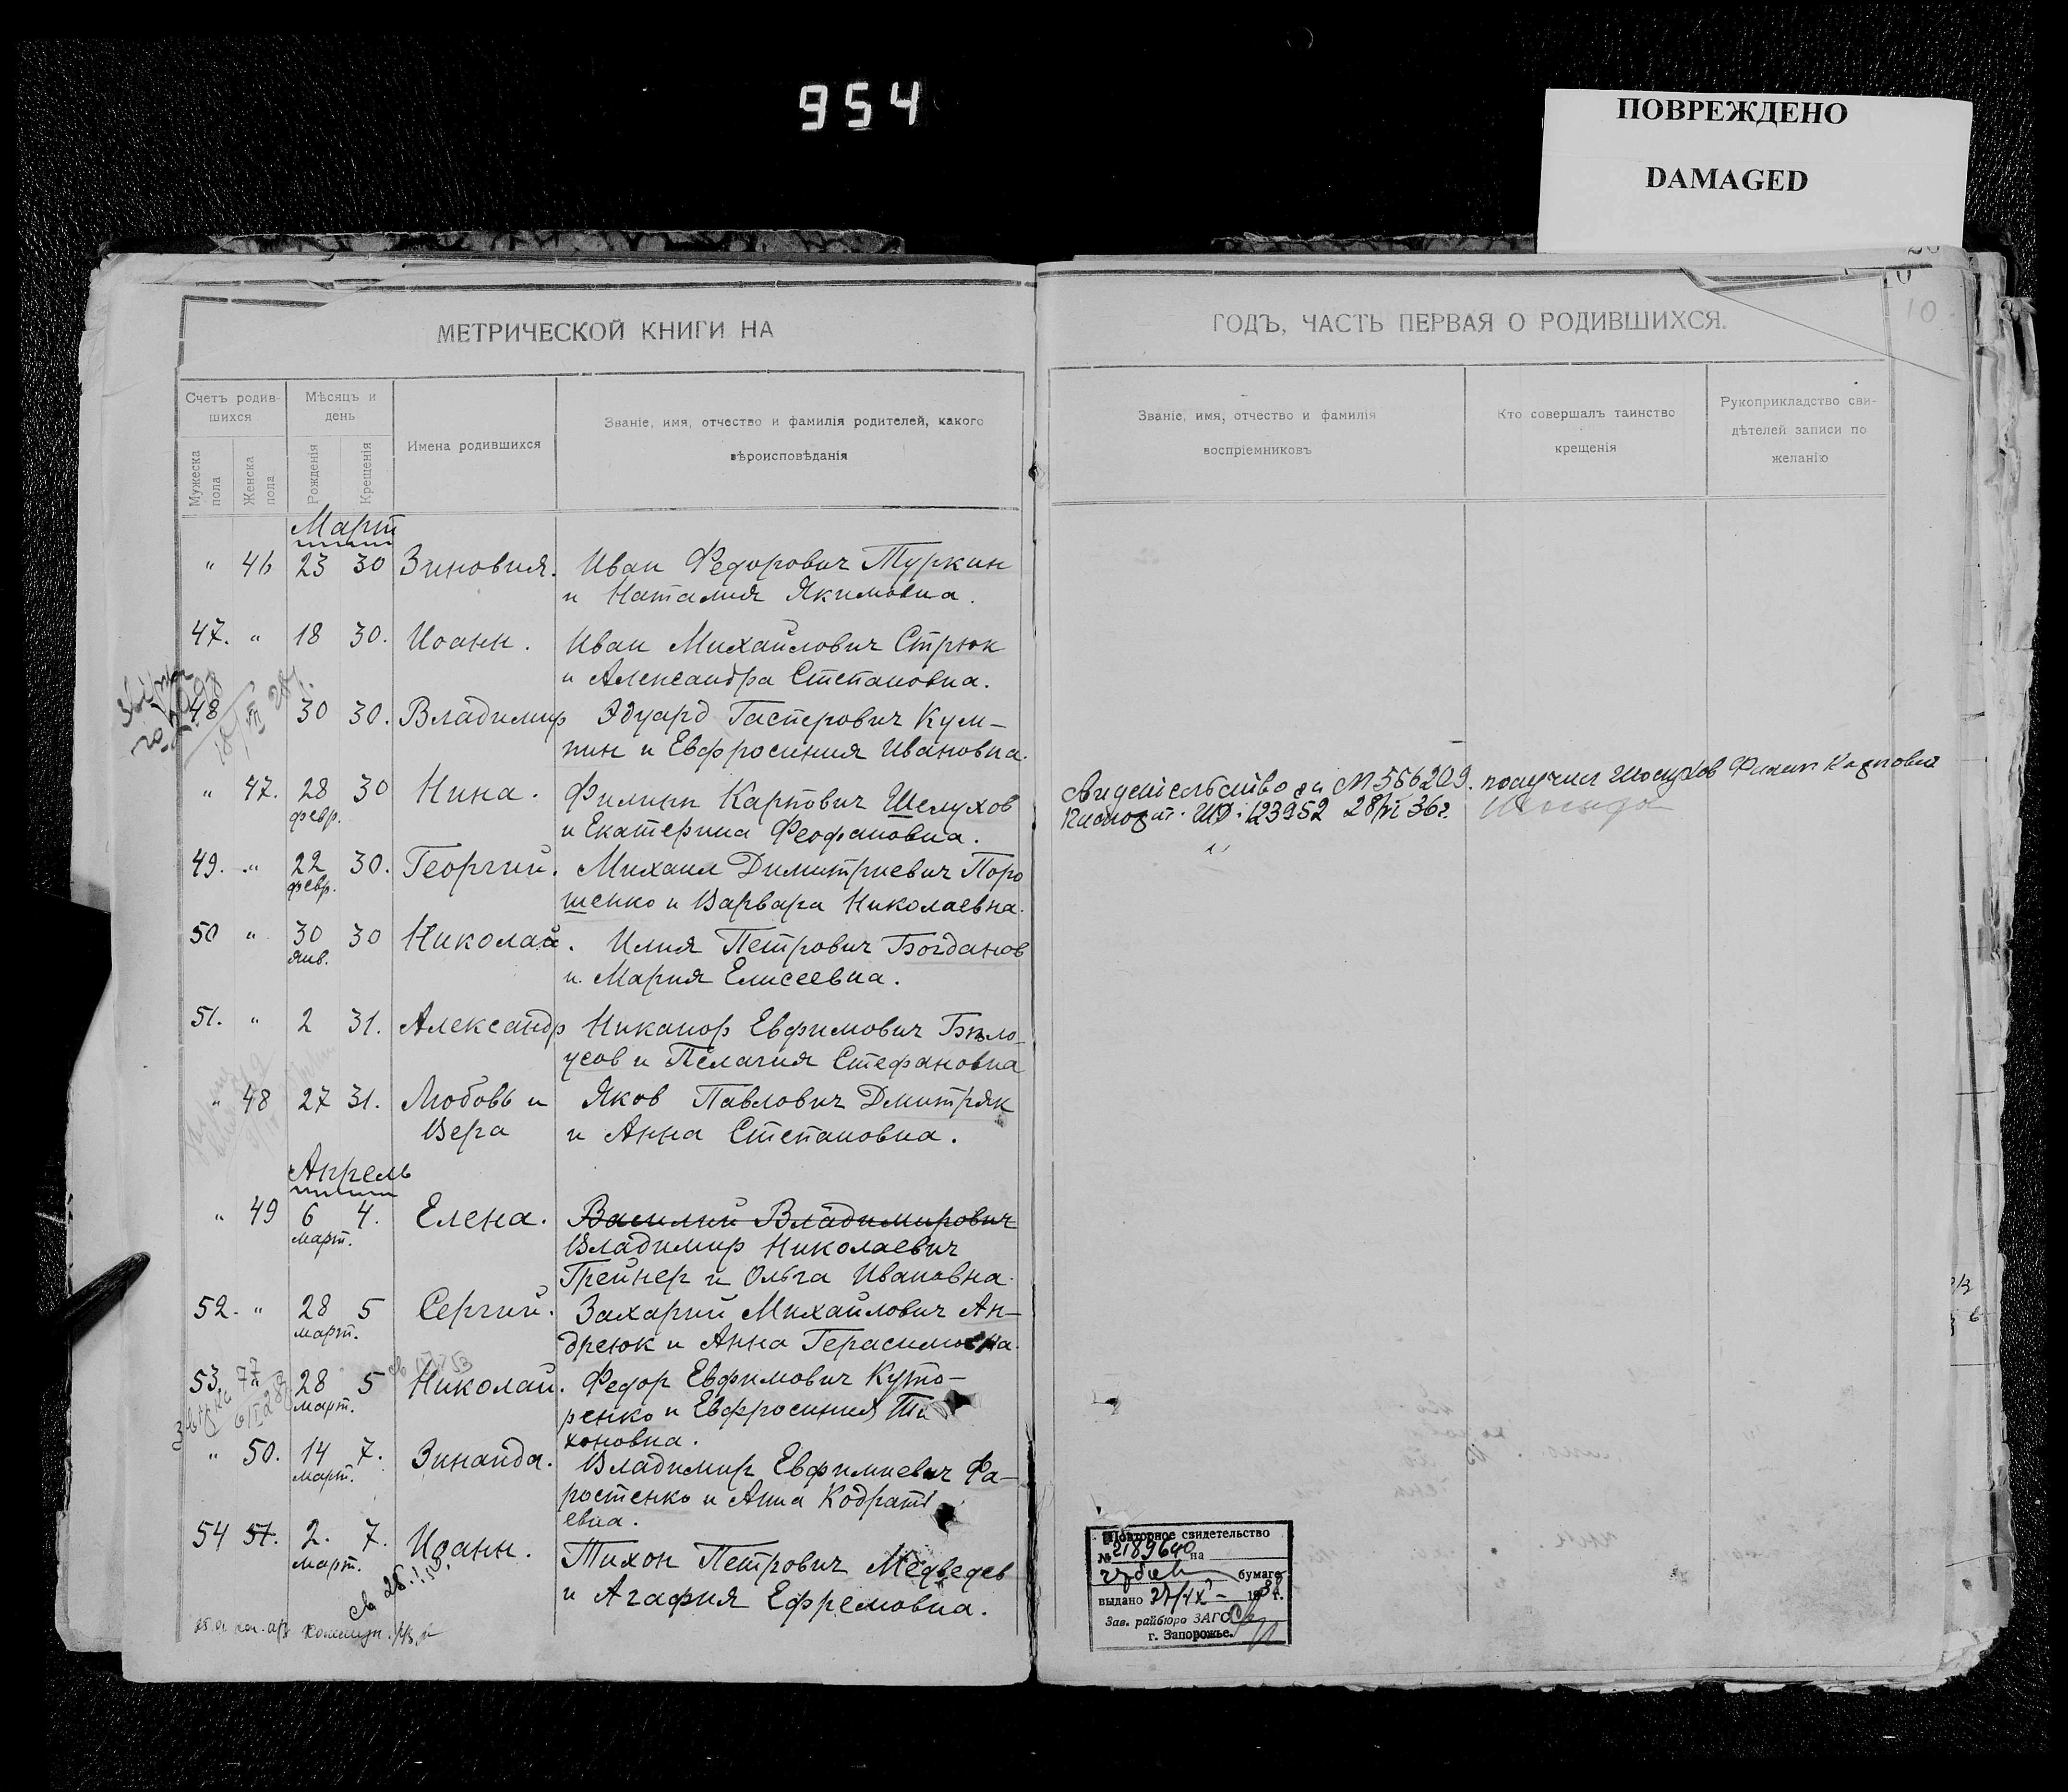 954
ПОВРЕЖДЕНО
DAMAGED
МЕТРИЧЕСКОЙ КНИГИ НА
Счетъ родив-
шихся
Мѣсяцъ и
день
Имена родившихся
Званіе, имя, отчество и фамилія родителей, какого
вѣроисповѣданія
Мужеска
пола
Женска
пола
Рожденія
Крещенія
Март
" 46 23 30 Зиновия. Иван Федорович Туркин
и Наталия Якимовна.
47. " 18 30. Иоанн. Иван Михайлович Стрюк
и Александра Степановна.
48 30 30. Владимир Эдуард Гастерович Кул-
пин и Евфросиния Ивановна.
" 47. 28 30 Нина. Филипп Карпович Шелухов
февр.
и Екатерина Феофановна.
49. " 22 30. Георгий. Михаил Димитриевич Поро
февр.
шенко и Варвара Николаевна.
50 " 30 30 Николай. Илия Петрович Богданов
янв.
и Мария Елисеевна.
51. " 2 31. Александр Никанор Евфимович Бѣло-
усов и Пелагия Стефановна
" 48 27 31. Любовь и Яков Павлович Дмитряк
Вера и Анна Степановна.
Апрель
" 49 6 4. Елена. Василий Владимирович
март.
Владимир Николаевич
Грейнер и Ольга Ивановна.
52. " 28 5 Сергий. Захарий Михайлович Ан-
март.
дреюк и Анна Герасимовна.
53 28 5 Николай. Федор Евфимович Куто-
март.
ренко и Евфросиния Ти
хоновна.
" 50. 14 7. Зинаида. Владимир Евфимиевич Фа-
март.
ростенко и Анна Кодрать
евна.
54 51. 2. 7. Иоанн. Тихон Петрович Медведев
март.
и Агафия Ефремовна.
ГОДЪ, ЧАСТЬ ПЕРВАЯ О РОДИВШИХСЯ.
10
Званіе, имя, отчество и фамилія
воспріемниковъ
Кто совершалъ таинство
крещенія
Рукоприкладство сви-
дѣтелей записи по
желанію
Свидетельство за № 556209. получил Шолухов Филип Карпович
123952 28/VI 36 г.
Повторное свидетельство
№ 2189640 на
бумаге
выдано 27/IX 1938 г.
Зав. райбюро ЗАГС
г. Запорожье.